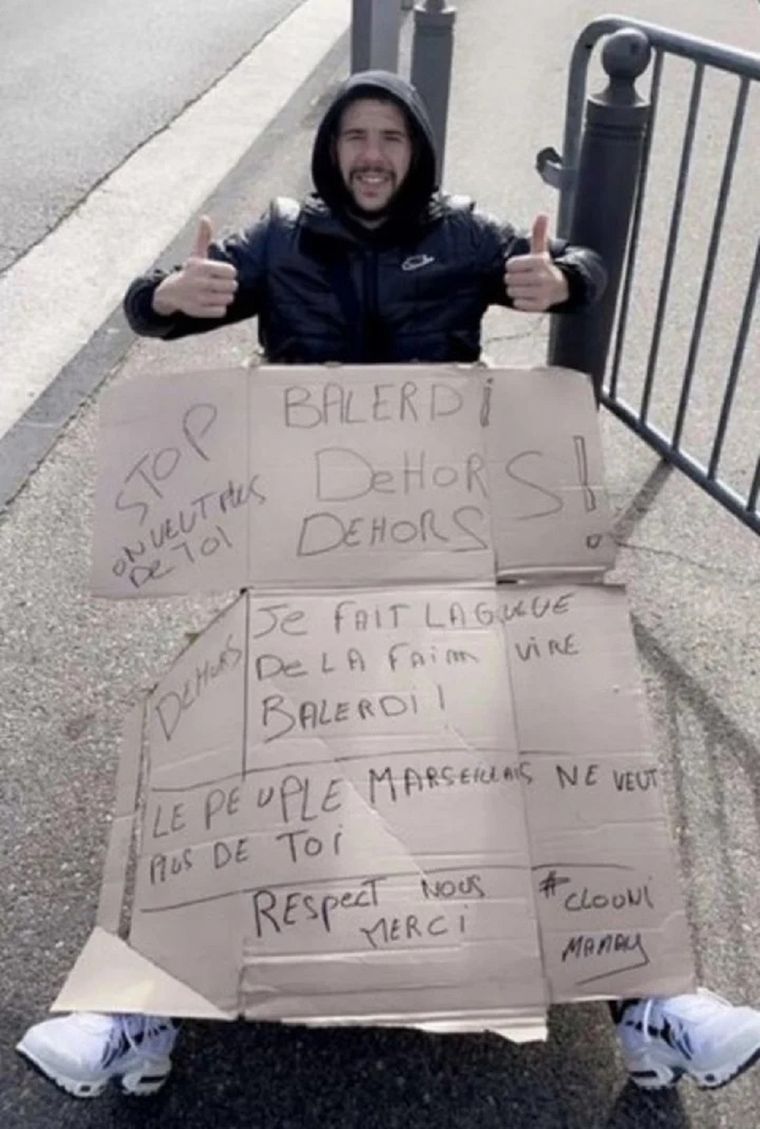 STOP
ON VEUT PLUS
DE TOI
BALERDI
DeHORS!
DEHORS
DEHORS
Je FAIT LA GUEUE
De LA FAim VIRE
BALERDI!
LE PEUPLE MARSEILLAIS NE VEUT
PLUS DE TOI
RESpecT NOUS
MERCI
#CLOUNI
MAMADY